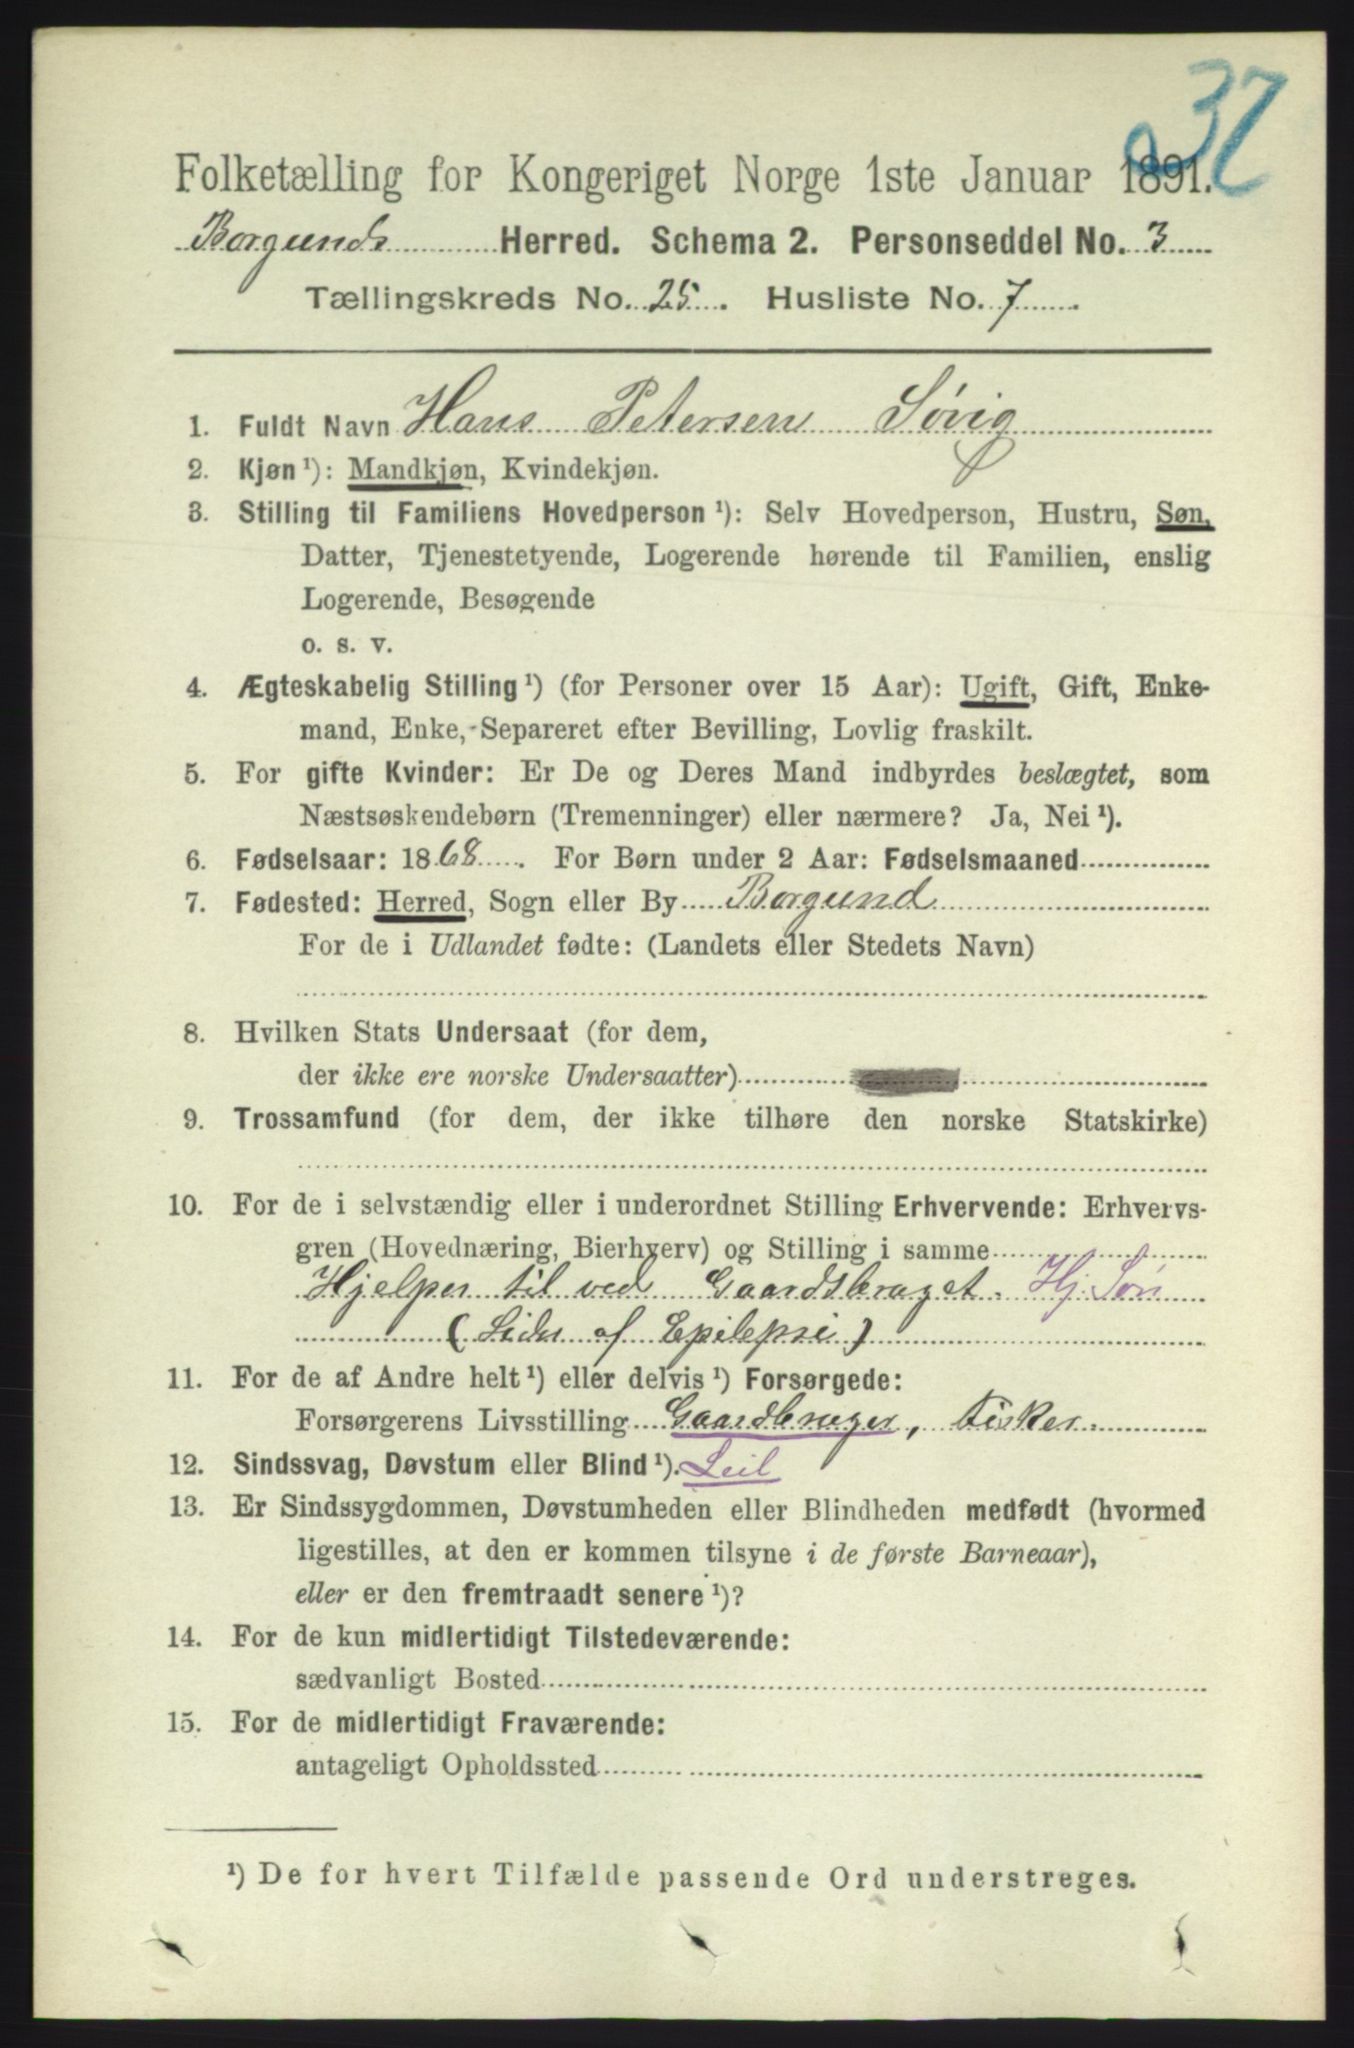 Folketælling for Kongeriget Norge 1ste Januar 1891.
Borgunds Herred. Schema 2. Personseddel No. 3
Tællingskreds No. 25. Husliste No. 7
1. Fuldt Navn Hans Petersen Søvig
2. Kjøn ¹): Mandkjøn, Kvindekjøn.
3. Stilling til Familiens Hovedperson ¹): Selv Hovedperson, Hustru, Søn,
Datter, Tjenestetyende, Logerende hørende til Familien, enslig
Logerende, Besøgende
o. s. v.
4. Ægteskabelig Stilling ¹) (for Personer over 15 Aar): Ugift, Gift, Enke-
mand, Enke, Separeret efter Bevilling, Lovlig fraskilt.
5. For gifte Kvinder: Er De og Deres Mand indbyrdes beslægtet, som
Næstsøskendebørn (Tremenninger) eller nærmere? Ja, Nei ¹).
6. Fødselsaar: 1868. For Børn under 2 Aar: Fødselsmaaned
7. Fødested: Herred, Sogn eller By Borgund
For de i Udlandet fødte: (Landets eller Stedets Navn)
8. Hvilken Stats Undersaat (for dem,
der ikke ere norske Undersaatter)
9. Trossamfund (for dem, der ikke tilhøre den norske Statskirke)
10. For de i selvstændig eller i underordnet Stilling Erhvervende: Erhvervs-
gren (Hovednæring, Bierhverv) og Stilling i samme
Hjelper til ved Gaardsbruget. Hj. Søn
(Lider af Epilepsi)
11. For de af Andre helt ¹) eller delvis ¹) Forsørgede:
Forsørgerens Livsstilling Gaardbruger, Fisker.
12. Sindssvag, Døvstum eller Blind ¹). Leil
13. Er Sindssygdommen, Døvstumheden eller Blindheden medfødt (hvormed
ligestilles, at den er kommen tilsyne i de første Barneaar),
eller er den fremtraadt senere ¹)?
14. For de kun midlertidigt Tilstedeværende:
sædvanligt Bosted
15. For de midlertidigt Fraværende:
antageligt Opholdssted
¹) De for hvert Tilfælde passende Ord understreges.